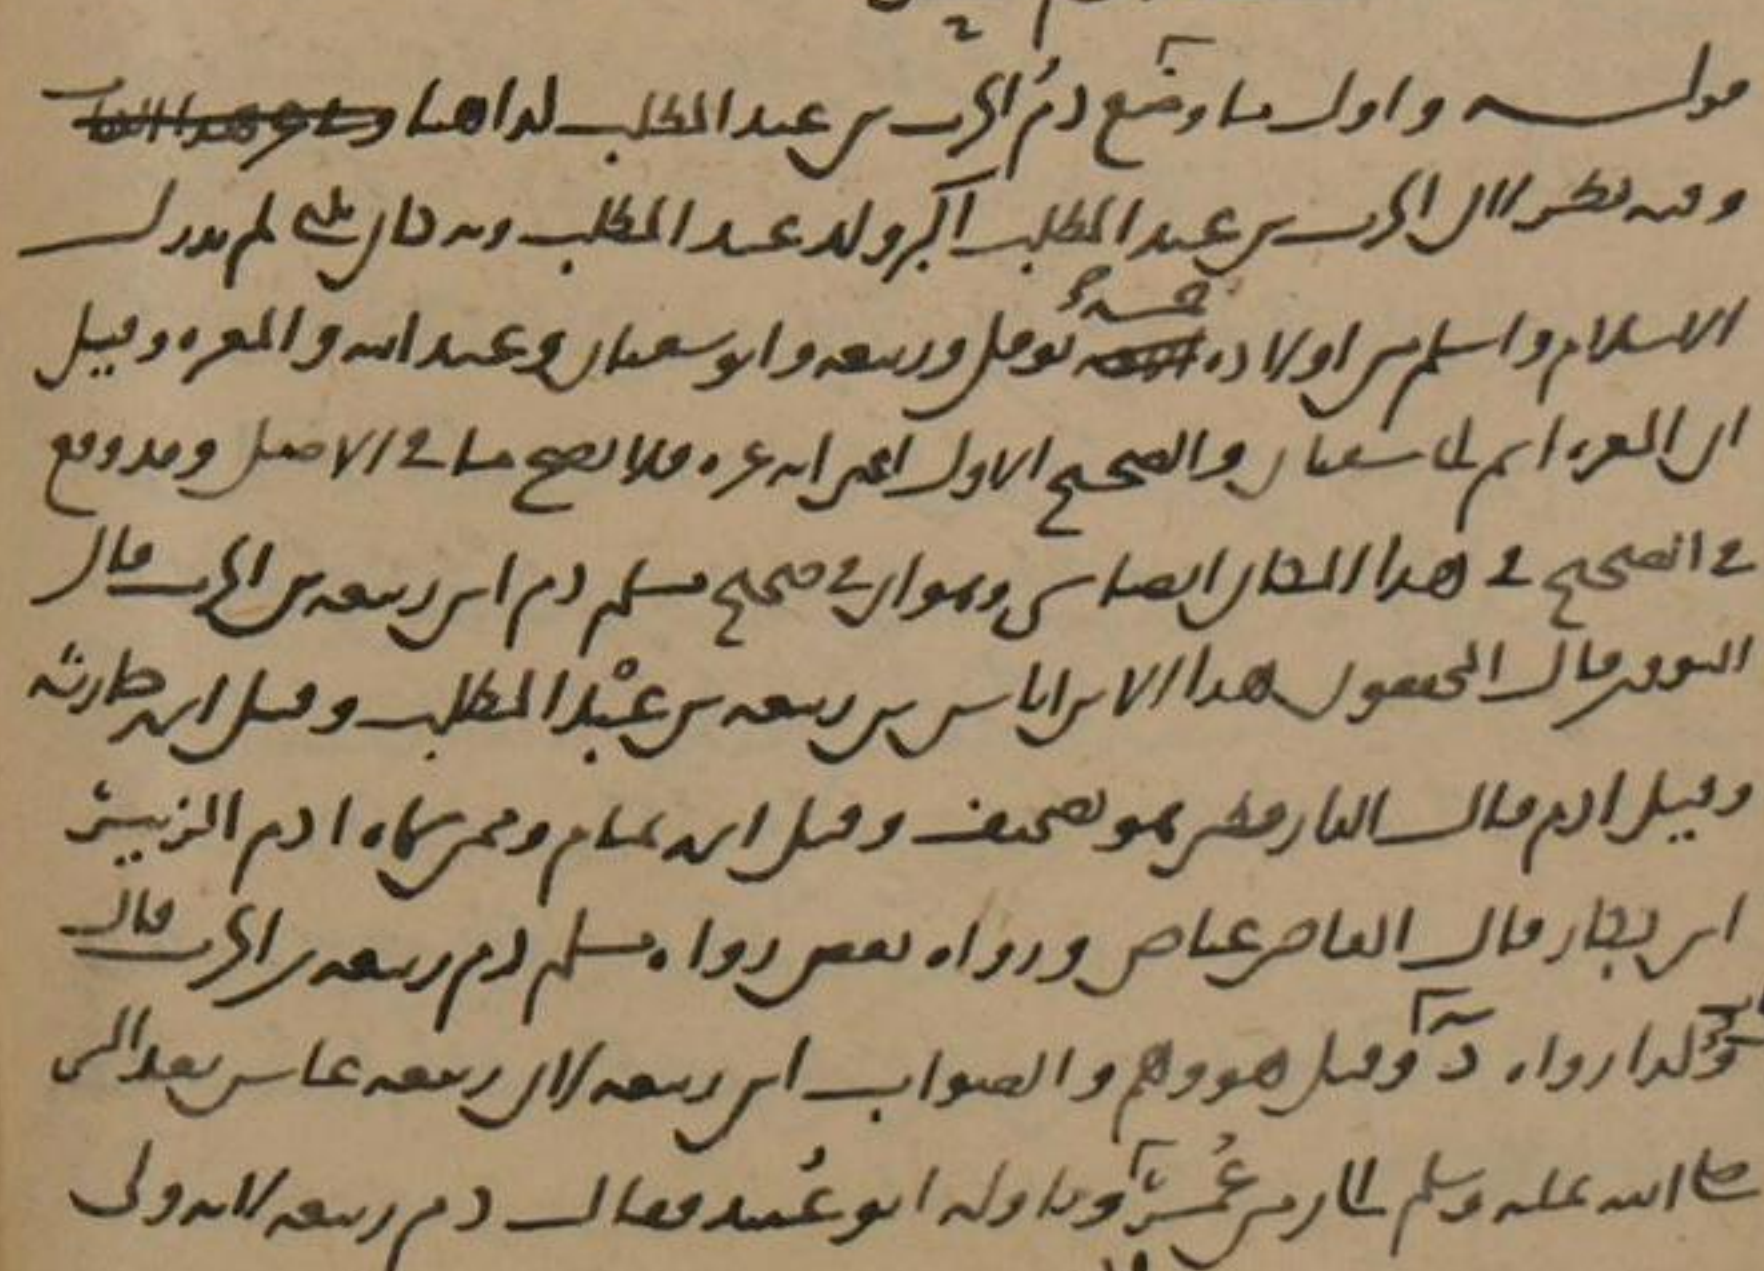 قوله واول ما وضع دم الحرث بن عبد المطلب كذا هنا
وفيه نظر لان الحرث بن عبد المطلب اكبر ولد عبد المطلب وبه كان يكنى لم يدرك
الاسلام واسلم من اولاده خمسة نوفل وربيعة وابو سفيان وعبد الله والمغيرة وقيل
ان المغيرة اسم ابي سفيان والصحيح الاول اعني انه غيره فلا يصح ما في الاصل وقد وقع
في الصحيح في هذا المكان ايضا شي وهو ان في صحيح مسلم دم ابن ربيعة بن الحرث قال
النووي قال المحققون هذا الابن اياس بن ربيعة بن عبد المطلب وقيل اسمه حارثة
وقيل ادم قال الدارقطني وهو تصحيف وقيل اسمه تمام وممن سماه ادم الزبير
ابن بكار قال القاضي عياض ورواه بعض رواة مسلم دم ربيعة بن الحرث قال
وكذا رواه د وقيل هو وهم والصواب ابن ربيعة لان ربيعة عاش بعد النبي
صلى الله عليه وسلم الى زمن عمر وتاوله ابو عبيد فقال دم ربيعة لانه ولي